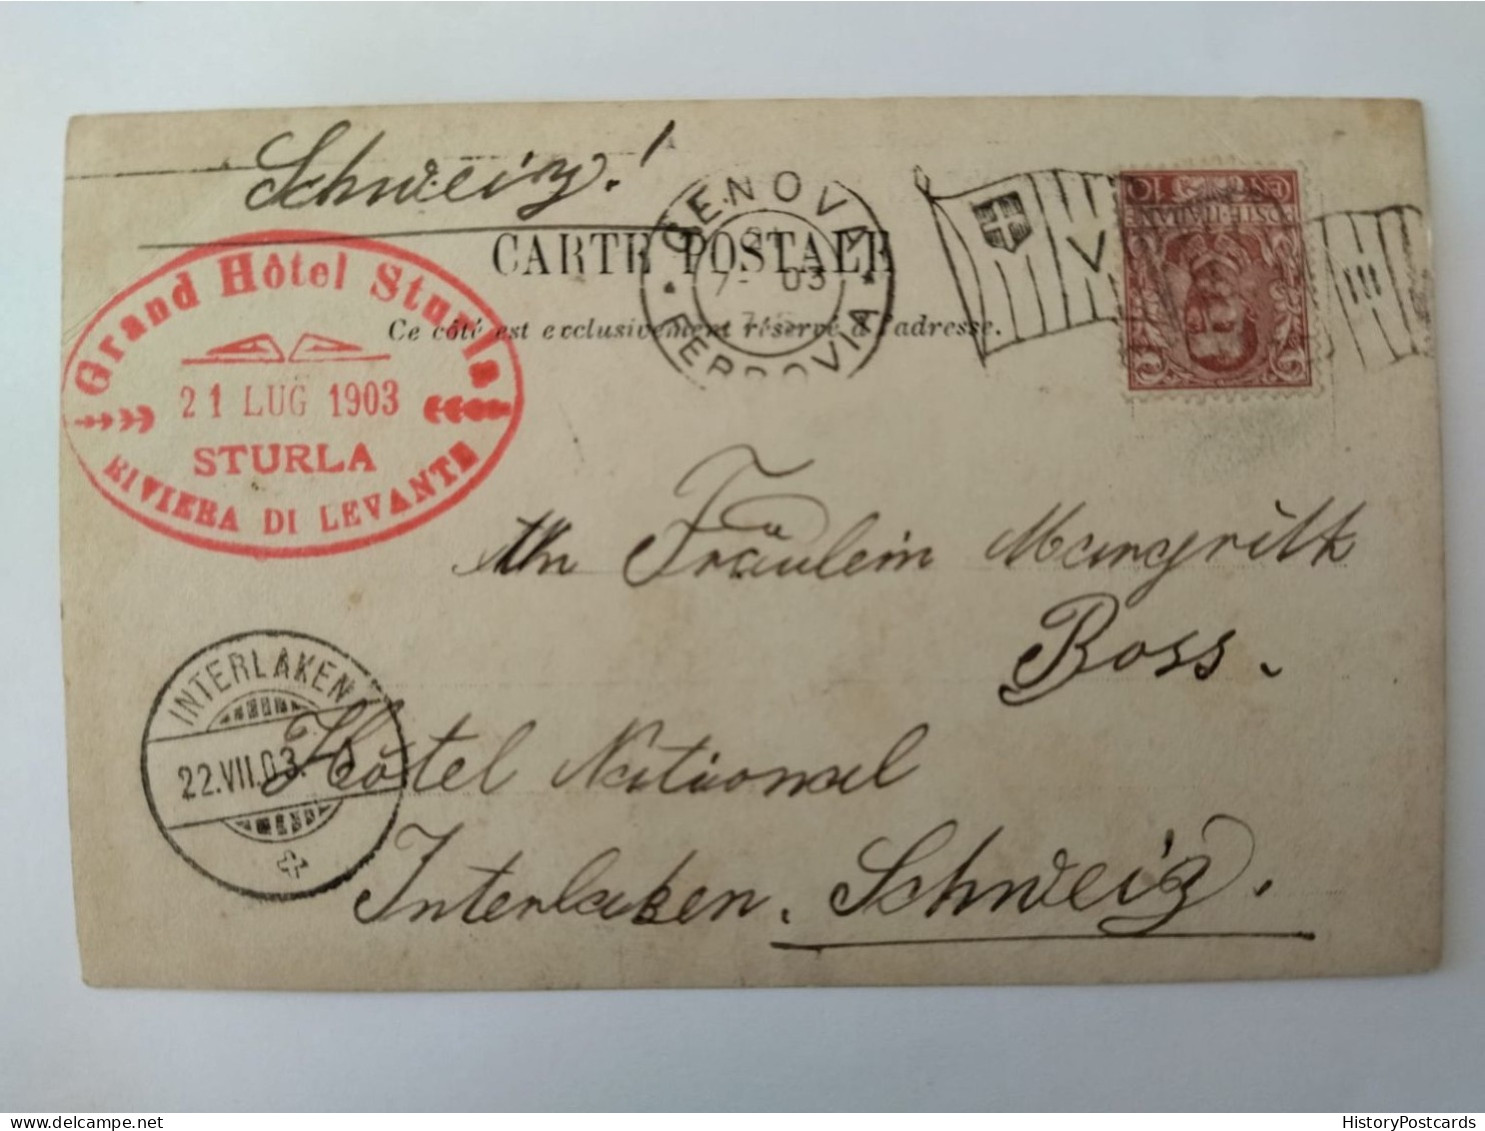 Schweiz!
CARTE POSTALE
Ce côté est exclusivement réservé à l'adresse.
GENOVA
21
7- 03
FERROVIA
V III
POSTE ITALIANE
Grand Hôtel Sturla
21 LUG 1903
STURLA
RIVIERA DI LEVANTE
An Fräulein Margrith
Boss.
INTERLAKEN
22.VII.03.
Hôtel National
Interlaken. Schweiz.
HistoryPostcards